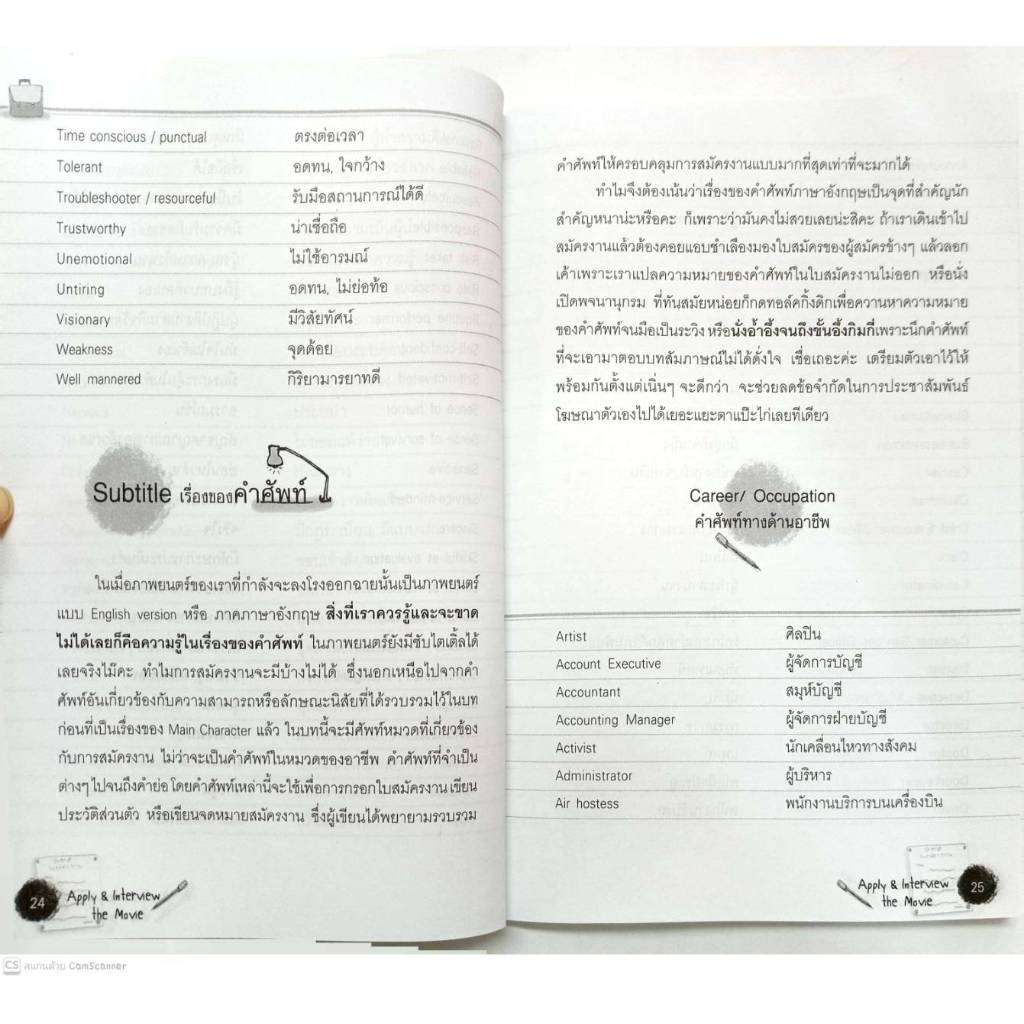 Time conscious / punctual ตรงต่อเวลา
Tolerant อดทน, ใจกว้าง
Troubleshooter / resourceful รับมือสถานการณ์ได้ดี
Trustworthy น่าเชื่อถือ
Unemotional ไม่ใช้อารมณ์
Untiring อดทน, ไม่ย่อท้อ
Visionary มีวิสัยทัศน์
Weakness จุดด้อย
Well mannered กิริยามารยาทดี
Subtitle เรื่องของคำศัพท์
ในเมื่อภาพยนตร์ของเราที่กำลังจะลงโรงออกฉายนั้นเป็นภาพยนตร์
แบบ English version หรือ ภาคภาษาอังกฤษ สิ่งที่เราควรรู้และจะขาด
ไม่ได้เลยก็คือความรู้ในเรื่องของคำศัพท์ ในภาพยนตร์ยังมีซับไตเติ้ลได้
เลยจริงไม๊คะ ทำไมการสมัครงานจะมีบ้างไม่ได้ ซึ่งนอกเหนือไปจากคำ
ศัพท์อันเกี่ยวข้องกับความสามารถหรือลักษณะนิสัยที่ได้รวบรวมไว้ในบท
ก่อนที่เป็นเรื่องของ Main Character แล้ว ในบทนี้จะมีศัพท์หมวดที่เกี่ยวข้อง
กับการสมัครงาน ไม่ว่าจะเป็นคำศัพท์ในหมวดของอาชีพ คำศัพท์ที่จำเป็น
ต่างๆ ไปจนถึงคำย่อ โดยคำศัพท์เหล่านี้จะใช้เพื่อการกรอกใบสมัครงาน เขียน
ประวัติส่วนตัว หรือเขียนจดหมายสมัครงาน ซึ่งผู้เขียนได้พยายามรวบรวม
24 Apply & Interview
the Movie
CS สแกนด้วย CamScanner
คำศัพท์ให้ครอบคลุมการสมัครงานแบบมากที่สุดเท่าที่จะมากได้
ทำไมจึงต้องเน้นว่าเรื่องของคำศัพท์ภาษาอังกฤษเป็นจุดที่สำคัญนัก
สำคัญหนาน่ะหรือคะ ก็เพราะว่ามันคงไม่สวยเลยน่ะสิคะ ถ้าเราเดินเข้าไป
สมัครงานแล้วต้องคอยแอบชำเลืองมองใบสมัครของผู้สมัครข้างๆ แล้วลอก
เค้าเพราะเราแปลความหมายของคำศัพท์ในใบสมัครงานไม่ออก หรือนั่ง
เปิดพจนานุกรม ที่ทันสมัยหน่อยก็กดทอล์คกิ้งดิกเพื่อควานหาความหมาย
ของคำศัพท์จนมือเป็นระวิง หรือนั่งอ้ำอึ้งจนถึงขั้นอึ้งกิมกี่เพราะนึกคำศัพท์
ที่จะเอามาตอบบทสัมภาษณ์ไม่ได้ดั่งใจ เชื่อเถอะค่ะ เตรียมตัวเอาไว้ให้
พร้อมกันตั้งแต่เนิ่นๆ จะดีกว่า จะช่วยลดข้อจำกัดในการประชาสัมพันธ์
โฆษณาตัวเองไปได้เยอะแยะตาแป๊ะไก่เลยทีเดียว
Career/ Occupation
คำศัพท์ทางด้านอาชีพ
Artist ศิลปิน
Account Executive ผู้จัดการบัญชี
Accountant สมุห์บัญชี
Accounting Manager ผู้จัดการฝ่ายบัญชี
Activist นักเคลื่อนไหวทางสังคม
Administrator ผู้บริหาร
Air hostess พนักงานบริการบนเครื่องบิน
Apply & Interview 25
the Movie